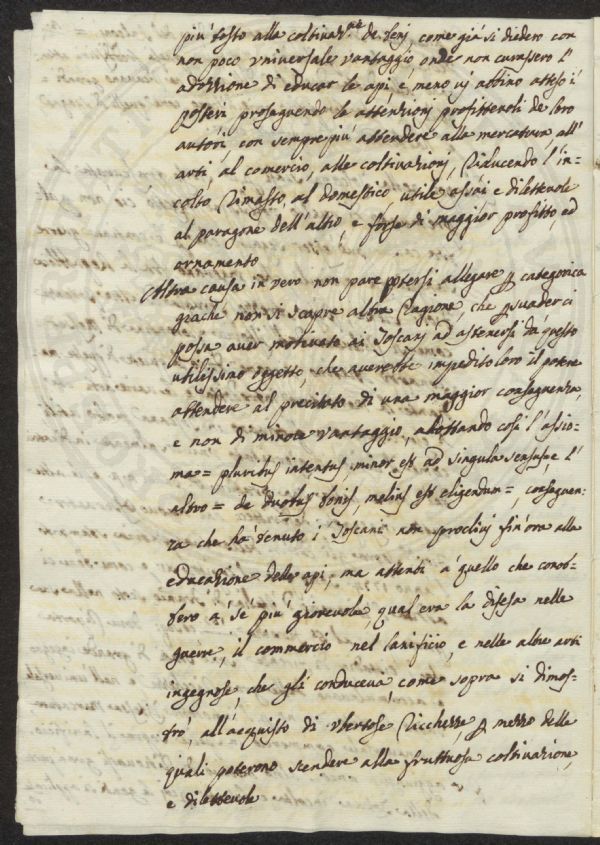 più tosto alla coltivaz.ne de beni, come già si diedero con
non poco vniversale vantaggio, onde non curassero l'
adozzione di educar le api e meno vi abbino atteso i
posteri proseguendo le attenzionj profittevoli de loro
autori, con sempre più attendere alla mercatura all'
arti, al comercio, alle coltivazionj, riducendo l'in=
colto rimasto, al domestico utile assai e dilettevole
al paragone dell'altro, e forse di maggior profitto, ed
ornamento
Altra causa in vero non pare potersi allegare p categorica
giachè non si scopre altra ragione, che p suaderci
possa aver motivato ai Toscanj ad astenersi da questo
utilissimo oggetto, che averebbe impedito loro il potere
attendere al precitato di una maggior conseguenza,
e non di minore vantaggio, adottando così l'assio=
ma = pluribus intentus, minor est ad singula sensus, e l'
altro = de duobus bonis, melius est eligendum =, conseguen=
za che ha tenuto i Toscani non proclivj fin'ora alla
educazione delle api, ma attenti a quello che conob=
bero a sè più giovevole, qual era la difesa nelle
guerre, il commercio nel lanificio, e nelle altre arti
ingegnose, che gli conduceva, come sopra si dimos=
trò, all'acquisto di vbertose ricchezze, p mezzo delle
quali poterono scendere alla fruttuosa coltivazione,
e dilettevole